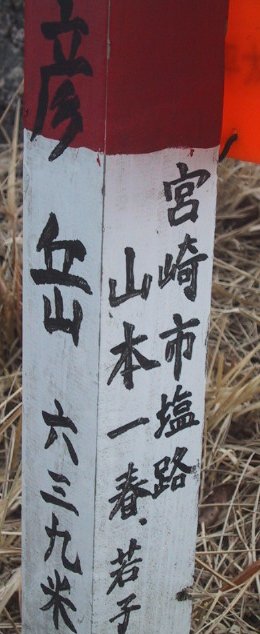 宮崎市塩路
山本一春、若子
彦岳 六三九米